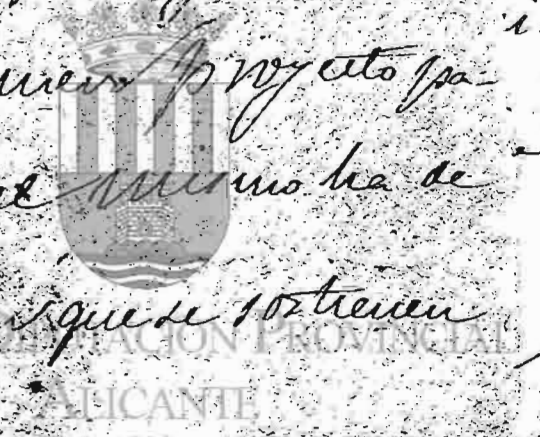 nuevo proyecto pa-
mismo ha de
que se sostienen
DIPUTACIÓN PROVINCIAL
ALICANTE